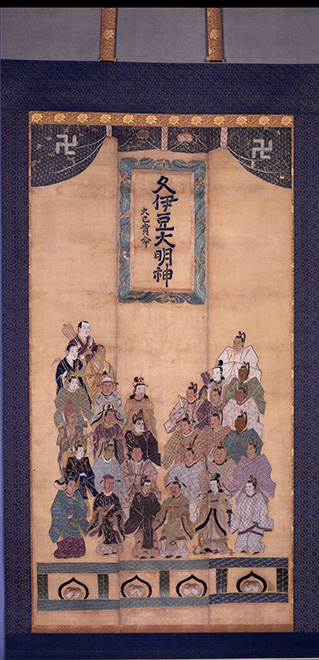 久伊豆大明神
大己貴命